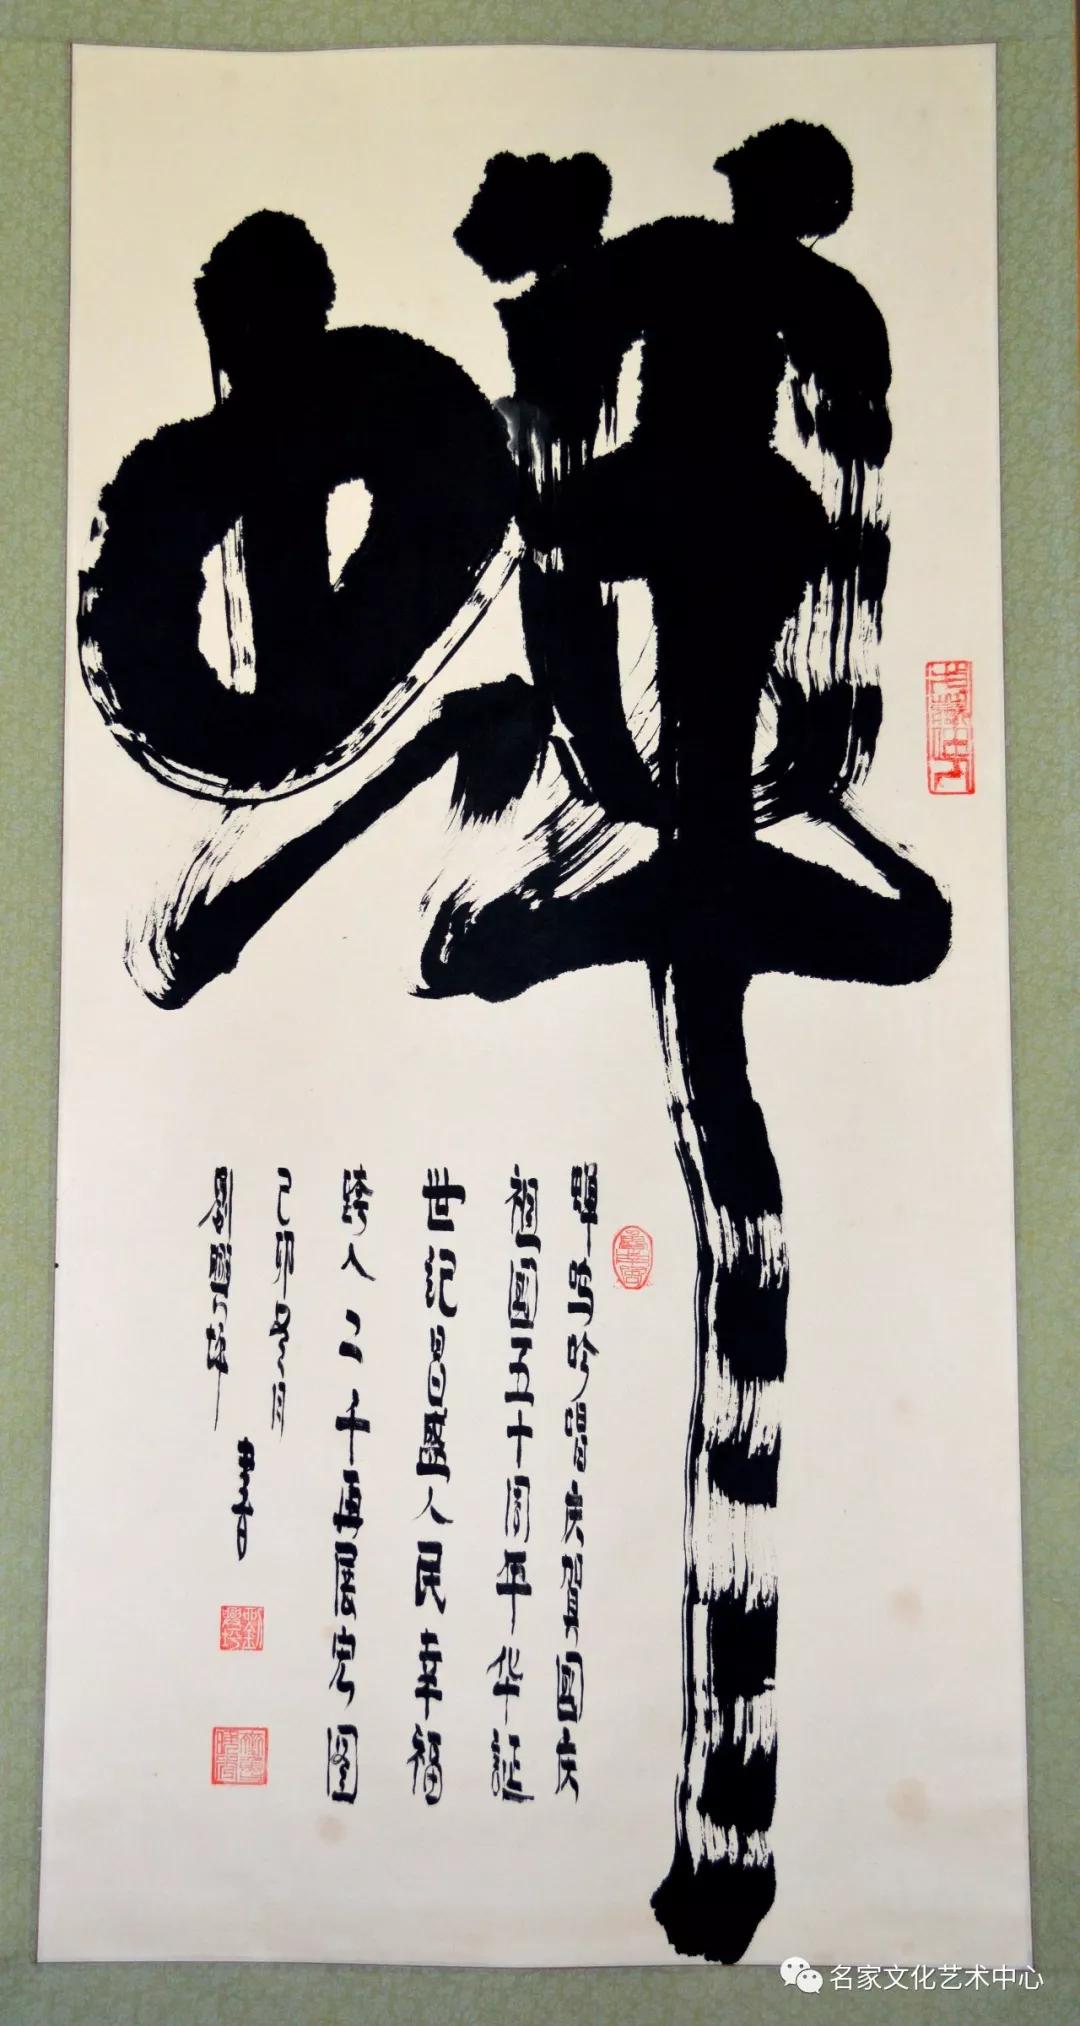 蝉
蝉鸣吟唱庆贺国庆
祖国五十周年华诞
世纪昌盛人民幸福
跨入二千再展宏图
己卯 月
书
名家文化艺术中心